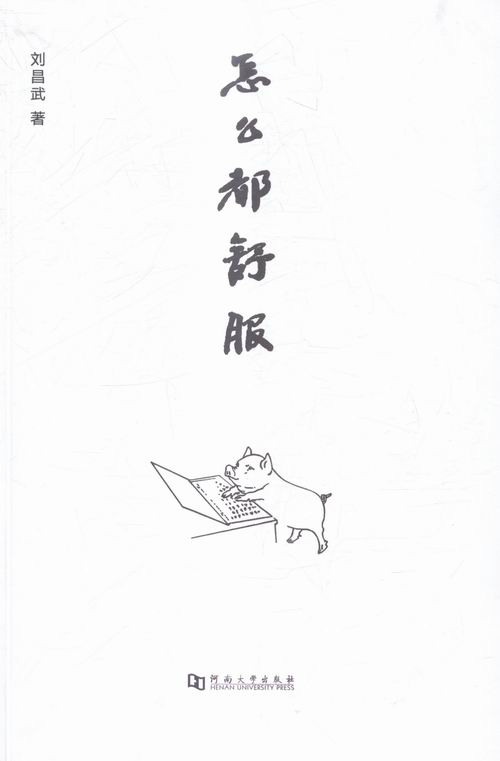 怎么都舒服
刘昌武 著
河南大学出版社
HENAN UNIVERSITY PRESS